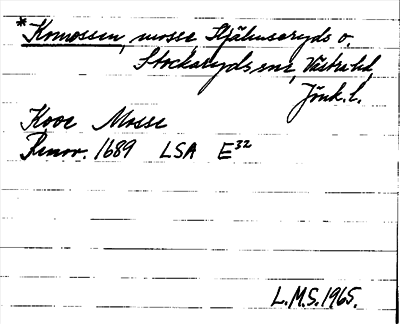 *Komossen, mosse Stjälnseryds o.
Stockaryds snr, Västra hd,
Jönk. l.
Kooe Mosse
Renov. 1689 LSA E32
L.M.S. 1965.